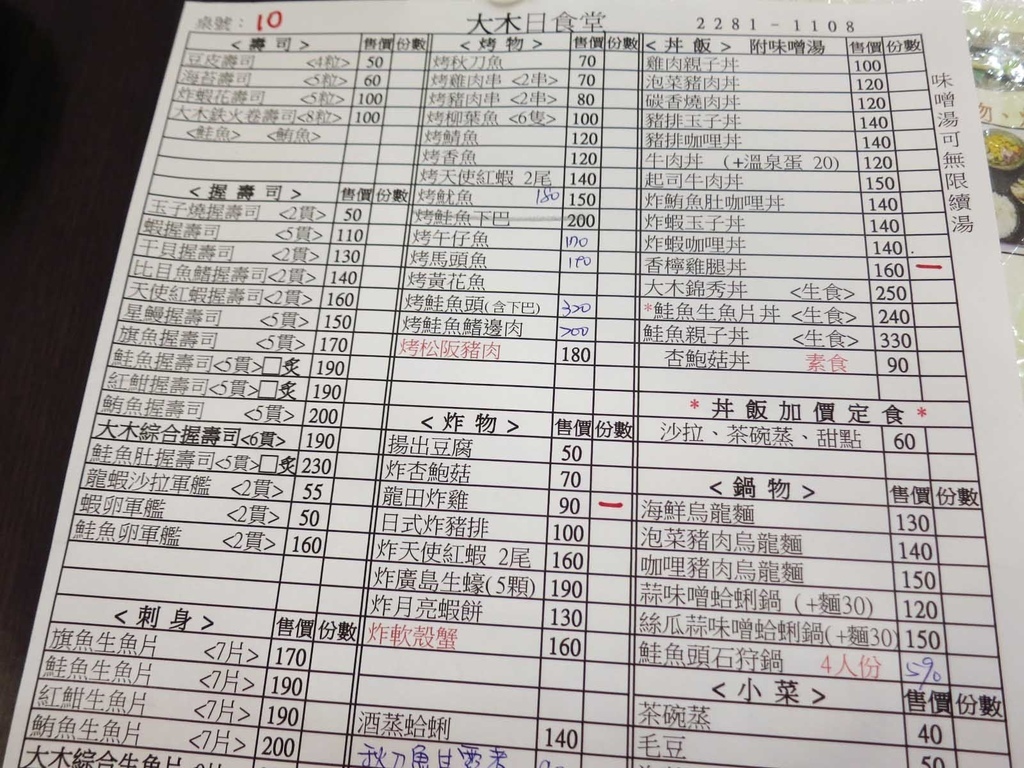 桌號：10 大木日食堂 2281-1108
<壽司> 售價 份數
豆皮壽司 <4粒> 50
海苔壽司 <5粒> 60
炸蝦花壽司 <5粒> 100
大木鉄火卷壽司<8粒> 100
<鮭魚> <鮪魚>
<握壽司> 售價 份數
玉子燒握壽司 <2貫> 50
蝦握壽司 <5貫> 110
干貝握壽司 <2貫> 130
比目魚鰭握壽司<2貫> 140
天使紅蝦握壽司<2貫> 160
星鰻握壽司 <5貫> 150
旗魚握壽司 <5貫> 170
鮭魚握壽司<5貫>□炙 190
紅魽握壽司<5貫>□炙 190
鮪魚握壽司 <5貫> 200
大木綜合握壽司<6貫> 190
鮭魚肚握壽司<5貫>□炙 230
龍蝦沙拉軍艦 <2貫> 55
蝦卵軍艦 <2貫> 50
鮭魚卵軍艦 <2貫> 160
<刺身> 售價 份數
旗魚生魚片 <7片> 170
鮭魚生魚片 <7片> 190
紅魽生魚片 <7片> 190
鮪魚生魚片 <7片> 200
大木綜合生魚片
<烤物> 售價 份數
烤秋刀魚 70
烤雞肉串 <2串> 70
烤豬肉串 <2串> 80
烤柳葉魚 <6隻> 100
烤鯖魚 120
烤香魚 120
烤天使紅蝦 2尾 140
烤魷魚 180 150
烤鮭魚下巴 200
烤午仔魚
烤馬頭魚
烤黃花魚
烤鮭魚頭(含下巴) 300
烤鮭魚鰭邊肉 200
烤松阪豬肉 180
<炸物> 售價 份數
揚出豆腐 50
炸杏鮑菇 70
龍田炸雞 90 一
日式炸豬排 100
炸天使紅蝦 2尾 160
炸廣島生蠔(5顆) 190
炸月亮蝦餅 130
炸軟殼蟹 160
酒蒸蛤蜊 140
秋刀魚甘露煮
<丼飯> 附味噌湯 售價 份數
雞肉親子丼 100
泡菜豬肉丼 120
碳香燒肉丼 120
豬排玉子丼 140
豬排咖哩丼 140
牛肉丼 (+溫泉蛋 20) 120
起司牛肉丼 150
炸鮪魚肚咖哩丼 140
炸蝦玉子丼 140
炸蝦咖哩丼 140
香檸雞腿丼 160 一
大木錦秀丼 <生食> 250
*鮭魚生魚片丼 <生食> 240
鮭魚親子丼 <生食> 330
杏鮑菇丼 素食 90
*丼飯加價定食*
沙拉、茶碗蒸、甜點 60
<鍋物> 售價 份數
海鮮烏龍麵 130
泡菜豬肉烏龍麵 140
咖哩豬肉烏龍麵 150
蒜味噌蛤蜊鍋 (+麵30) 120
絲瓜蒜味噌蛤蜊鍋(+麵30) 150
鮭魚頭石狩鍋 4人份 590
<小菜> 售價 份數
茶碗蒸 40
毛豆 50
味噌湯可無限續湯